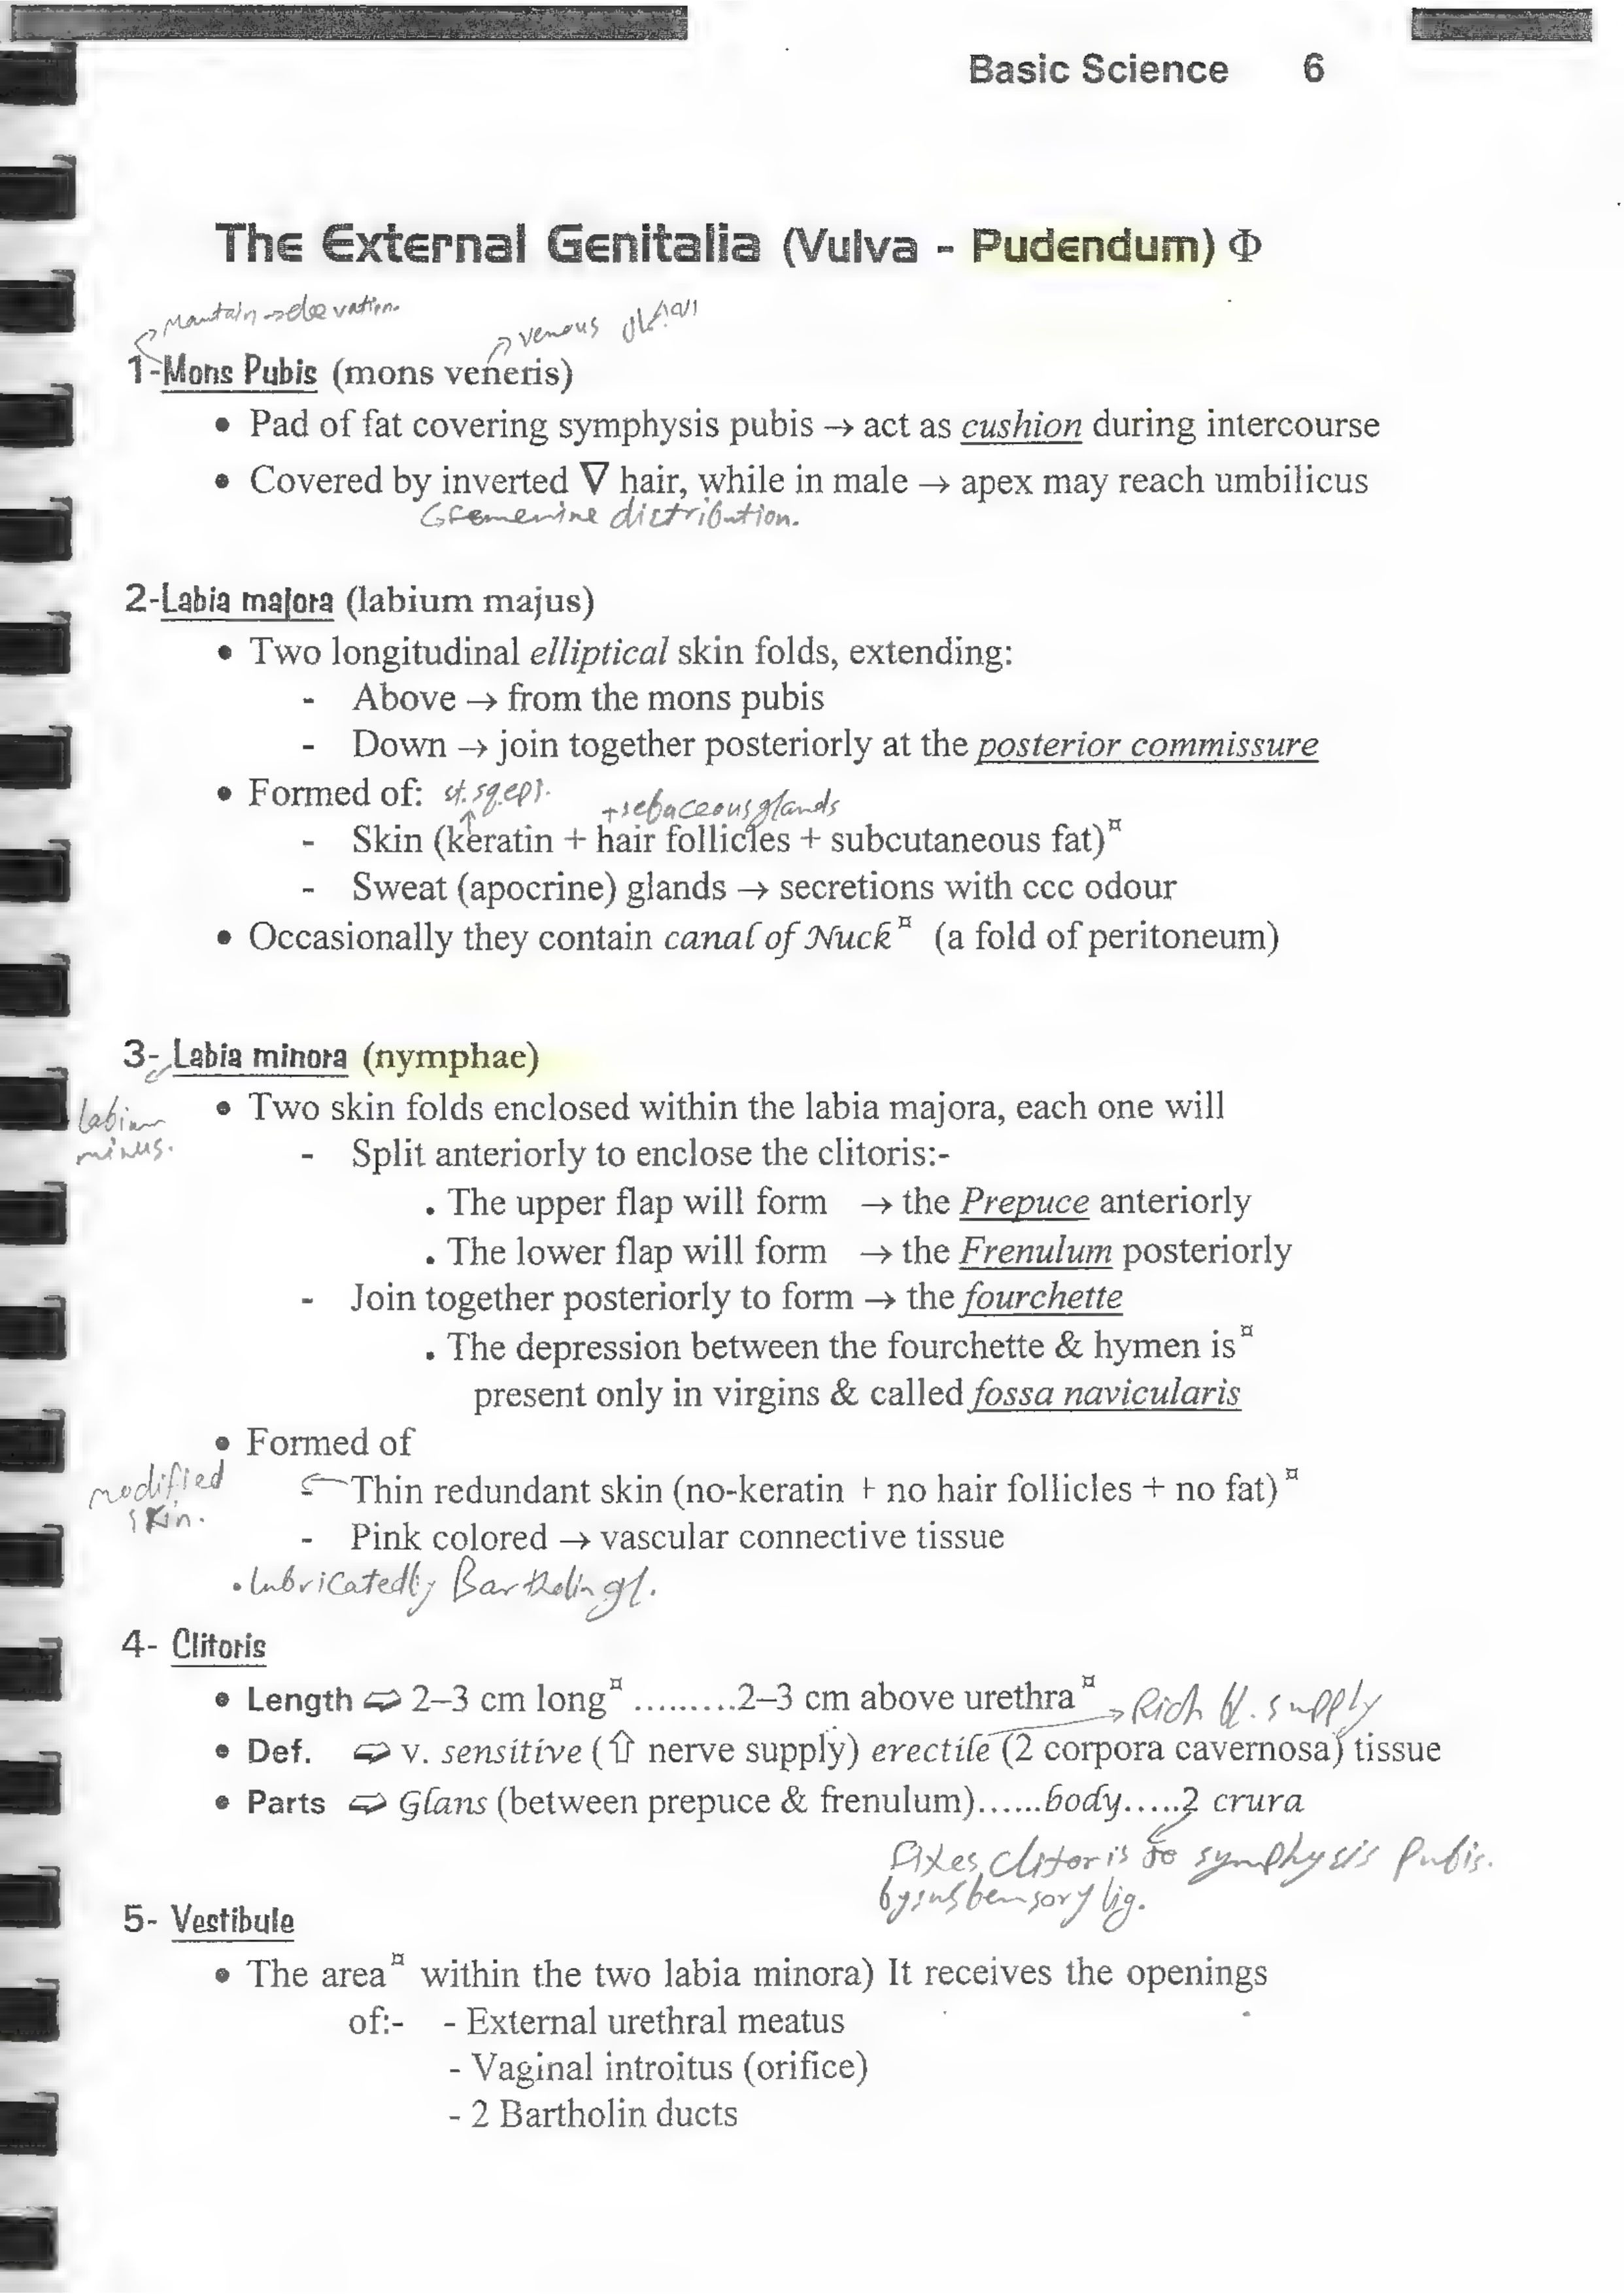 Basic Science 6
The External Genitalia (Vulva - Pudendum) Φ
Mantain → elevation.
venous
1-Mons Pubis (mons veneris)
• Pad of fat covering symphysis pubis → act as cushion during intercourse
• Covered by inverted ∇ hair, while in male → apex may reach umbilicus
femenine distribution.
2-Labia majora (labium majus)
• Two longitudinal elliptical skin folds, extending:
- Above → from the mons pubis
- Down → join together posteriorly at the posterior commissure
• Formed of: st. sq. epi.
+sebaceous glands
- Skin (keratin + hair follicles + subcutaneous fat)¤
- Sweat (apocrine) glands → secretions with ccc odour
• Occasionally they contain canal of Nuck¤ (a fold of peritoneum)
3- Labia minora (nymphae)
labium
minus.
• Two skin folds enclosed within the labia majora, each one will
- Split anteriorly to enclose the clitoris:-
. The upper flap will form → the Prepuce anteriorly
. The lower flap will form → the Frenulum posteriorly
- Join together posteriorly to form → the fourchette
. The depression between the fourchette & hymen is¤
present only in virgins & called fossa navicularis
• Formed of
modified
skin.
- Thin redundant skin (no-keratin + no hair follicles + no fat)¤
- Pink colored → vascular connective tissue
• lubricated by Bartholin gl.
4- Clitoris
• Length ⇨ 2–3 cm long¤ .........2–3 cm above urethra¤
→ Rich bl. supply
• Def. ⇨ v. sensitive (⇧ nerve supply) erectile (2 corpora cavernosa) tissue
• Parts ⇨ Glans (between prepuce & frenulum)......body.....2 crura
Fixes clitoris to symphysis pubis.
by susbensory lig.
5- Vestibule
• The area¤ within the two labia minora) It receives the openings
of:- - External urethral meatus
- Vaginal introitus (orifice)
- 2 Bartholin ducts